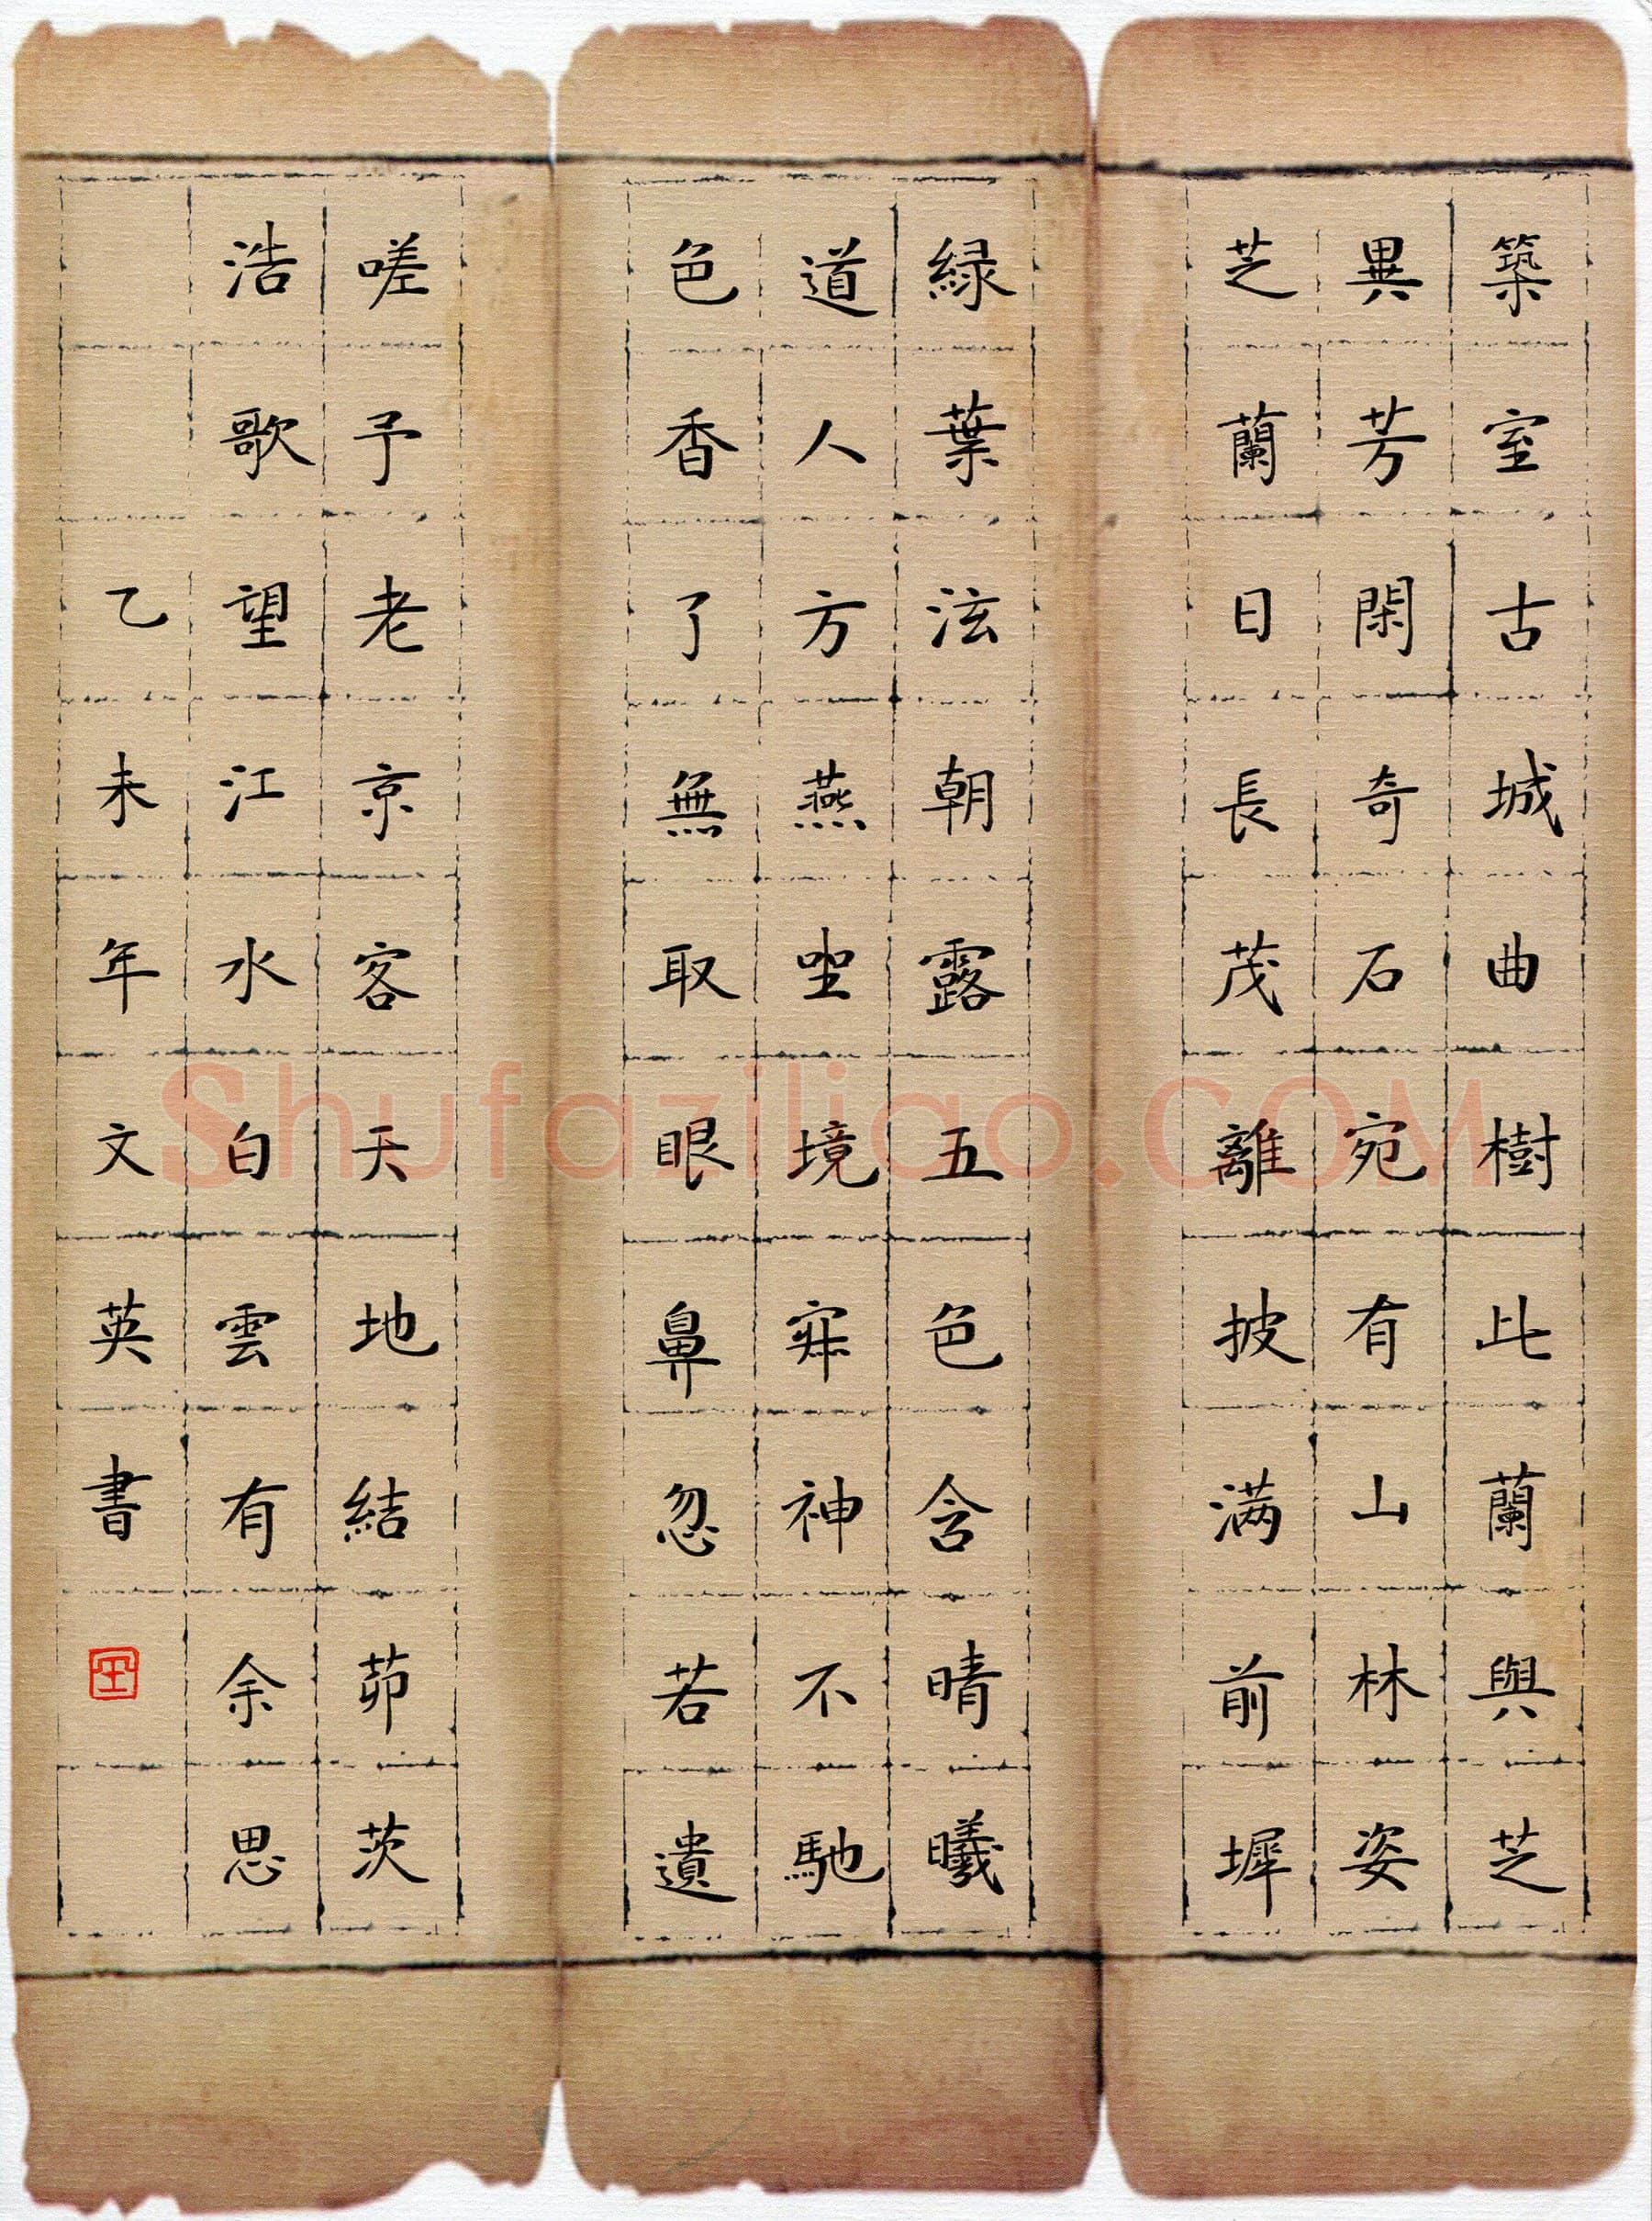 築室古城曲樹此蘭與芝
異芳閑奇石宛有山林姿
芝蘭日長茂離披满前墀
緑葉泫朝露五色含晴曦
道人方燕坐境寂神不馳
色香了無取眼鼻忽若遺
嗟予老京客天地結茆茨
浩歌望江水白雲有余思
乙未年文英書
Shufaziliao.COM